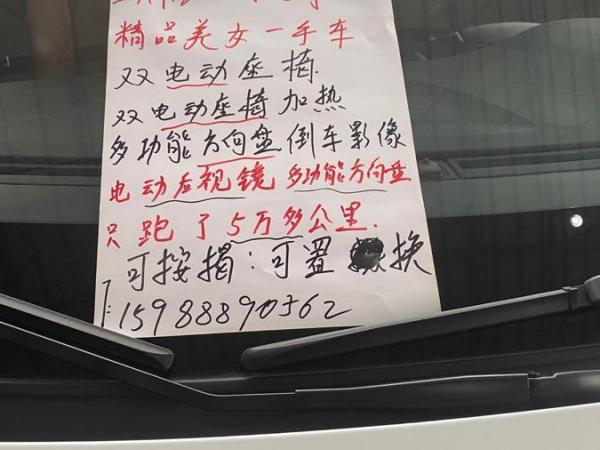 精品美女一手车
双电动座椅
双电动座椅加热
多功能方向盘倒车影像
电动后视镜多功能方向盘
只跑了5万多公里.
可按揭:可置换
:15988890562